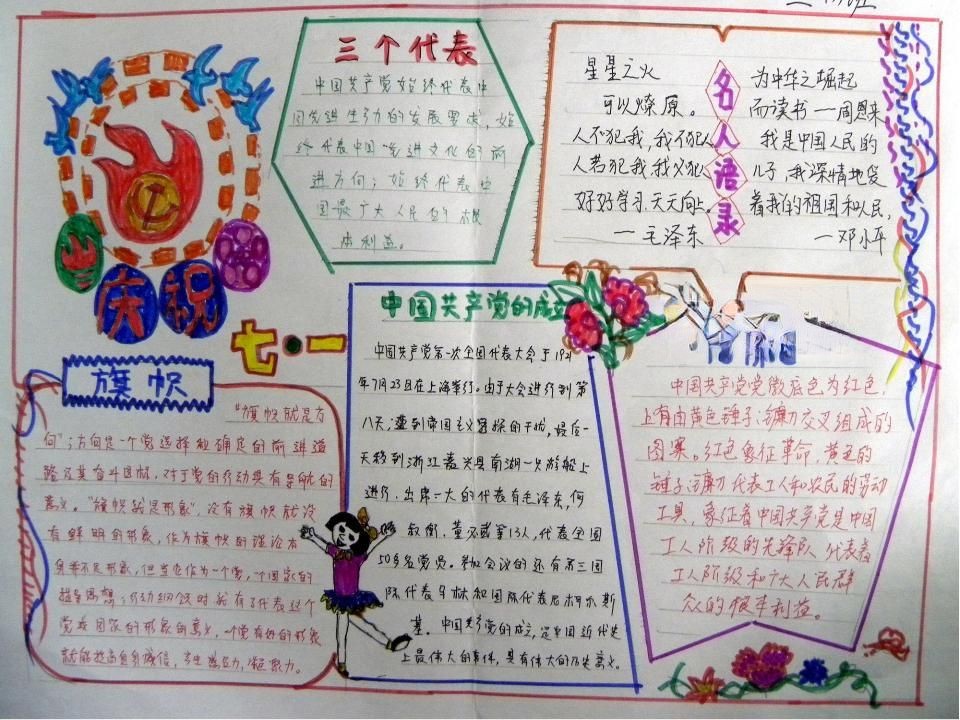 三个代表
中国共产党始终代表中
国先进生产力的发展要求，始
终代表中国先进文化的前
进方向；始终代表中
国最广大人民的根
本利益。
名人语录
星星之火
可以燎原。
人不犯我，我不犯人
人若犯我，我必犯
好好学习，天天向上。
一毛泽东
为中华之崛起
而读书一周恩来
我是中国人民的
儿子，我深情地爱
着我的祖国和人民，
一邓小平
庆祝
七·一
旗帜
“旗帜就是方
向”；方向是一个党选择和确定的前进道
路及其奋斗目标，对于党的行动具有导航的
意义。“旗帜就是形象”，没有旗帜就没
有鲜明的形象，作为旗帜的理论本
身并不是形象，但当它作为一个党，一个国家的
指导思想，行动纲领时就有了代表这个
党或国家的形象的意义，一个党有好的形象
就能提高自身诚信，产生感召力，凝聚力。
中国共产党的成立
中国共产党第一次全国代表大会于1921
年7月23日在上海举行。由于大会进行到第
八天，遭到帝国主义密探的干扰，最后一
天移到浙江嘉兴县南湖一只游船上
进行。出席一大的代表有毛泽东，何
叔衡，董必武等13人，代表全国
50多名党员。参加会议的还有第三国
际代表马林和国际代表尼柯尔斯
基。中国共产党的成立，是中国近代史
上最伟大的事件，具有伟大的历史意义。
中国共产党党徽底色为红色，
上有由黄色锤子、镰刀交叉组成的
图案。红色象征革命，黄色的
锤子、镰刀代表工人和农民的劳动
工具，象征着中国共产党是中国
工人阶级的先锋队，代表着
工人阶级和广大人民群
众的根本利益。